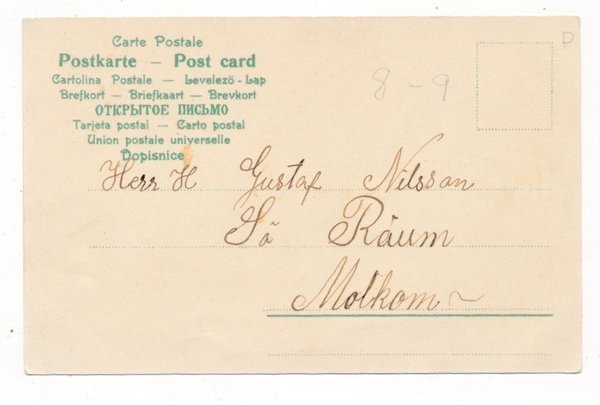 Carte Postale
Postkarte — Post card
Cartolina Postale — Levelező-Lap
Brefkort — Briefkaart — Brevkort
ОТКРЫТОЕ ПИСЬМО
Tarjeta postal — Carto postal
Union postale universelle
Dopisnice
8-9
D
Herr H Gustaf Nilsson
Så Råum
Molkom~